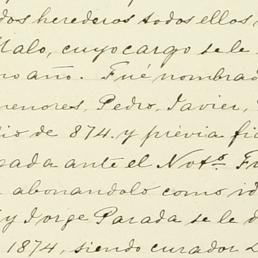 dos herederos todos ellos
Malo, cuyo cargo se le
no año. Fué nombrad
menores, Pedro, Javier,
io de 874. y prévia fi
gada ante el Not.º Fr
abonandolo como id
y Jorge Parada se le d
1874, siendo curador